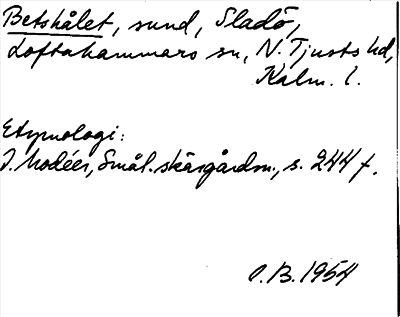 Betshålet, sund, Sladö,
Loftahammars sn, N. Tjusts hd,
Kalm. l.
Etymologi:
I. Modéer, Smål. skärgårdsn., s. 244 f.
O.B. 1954